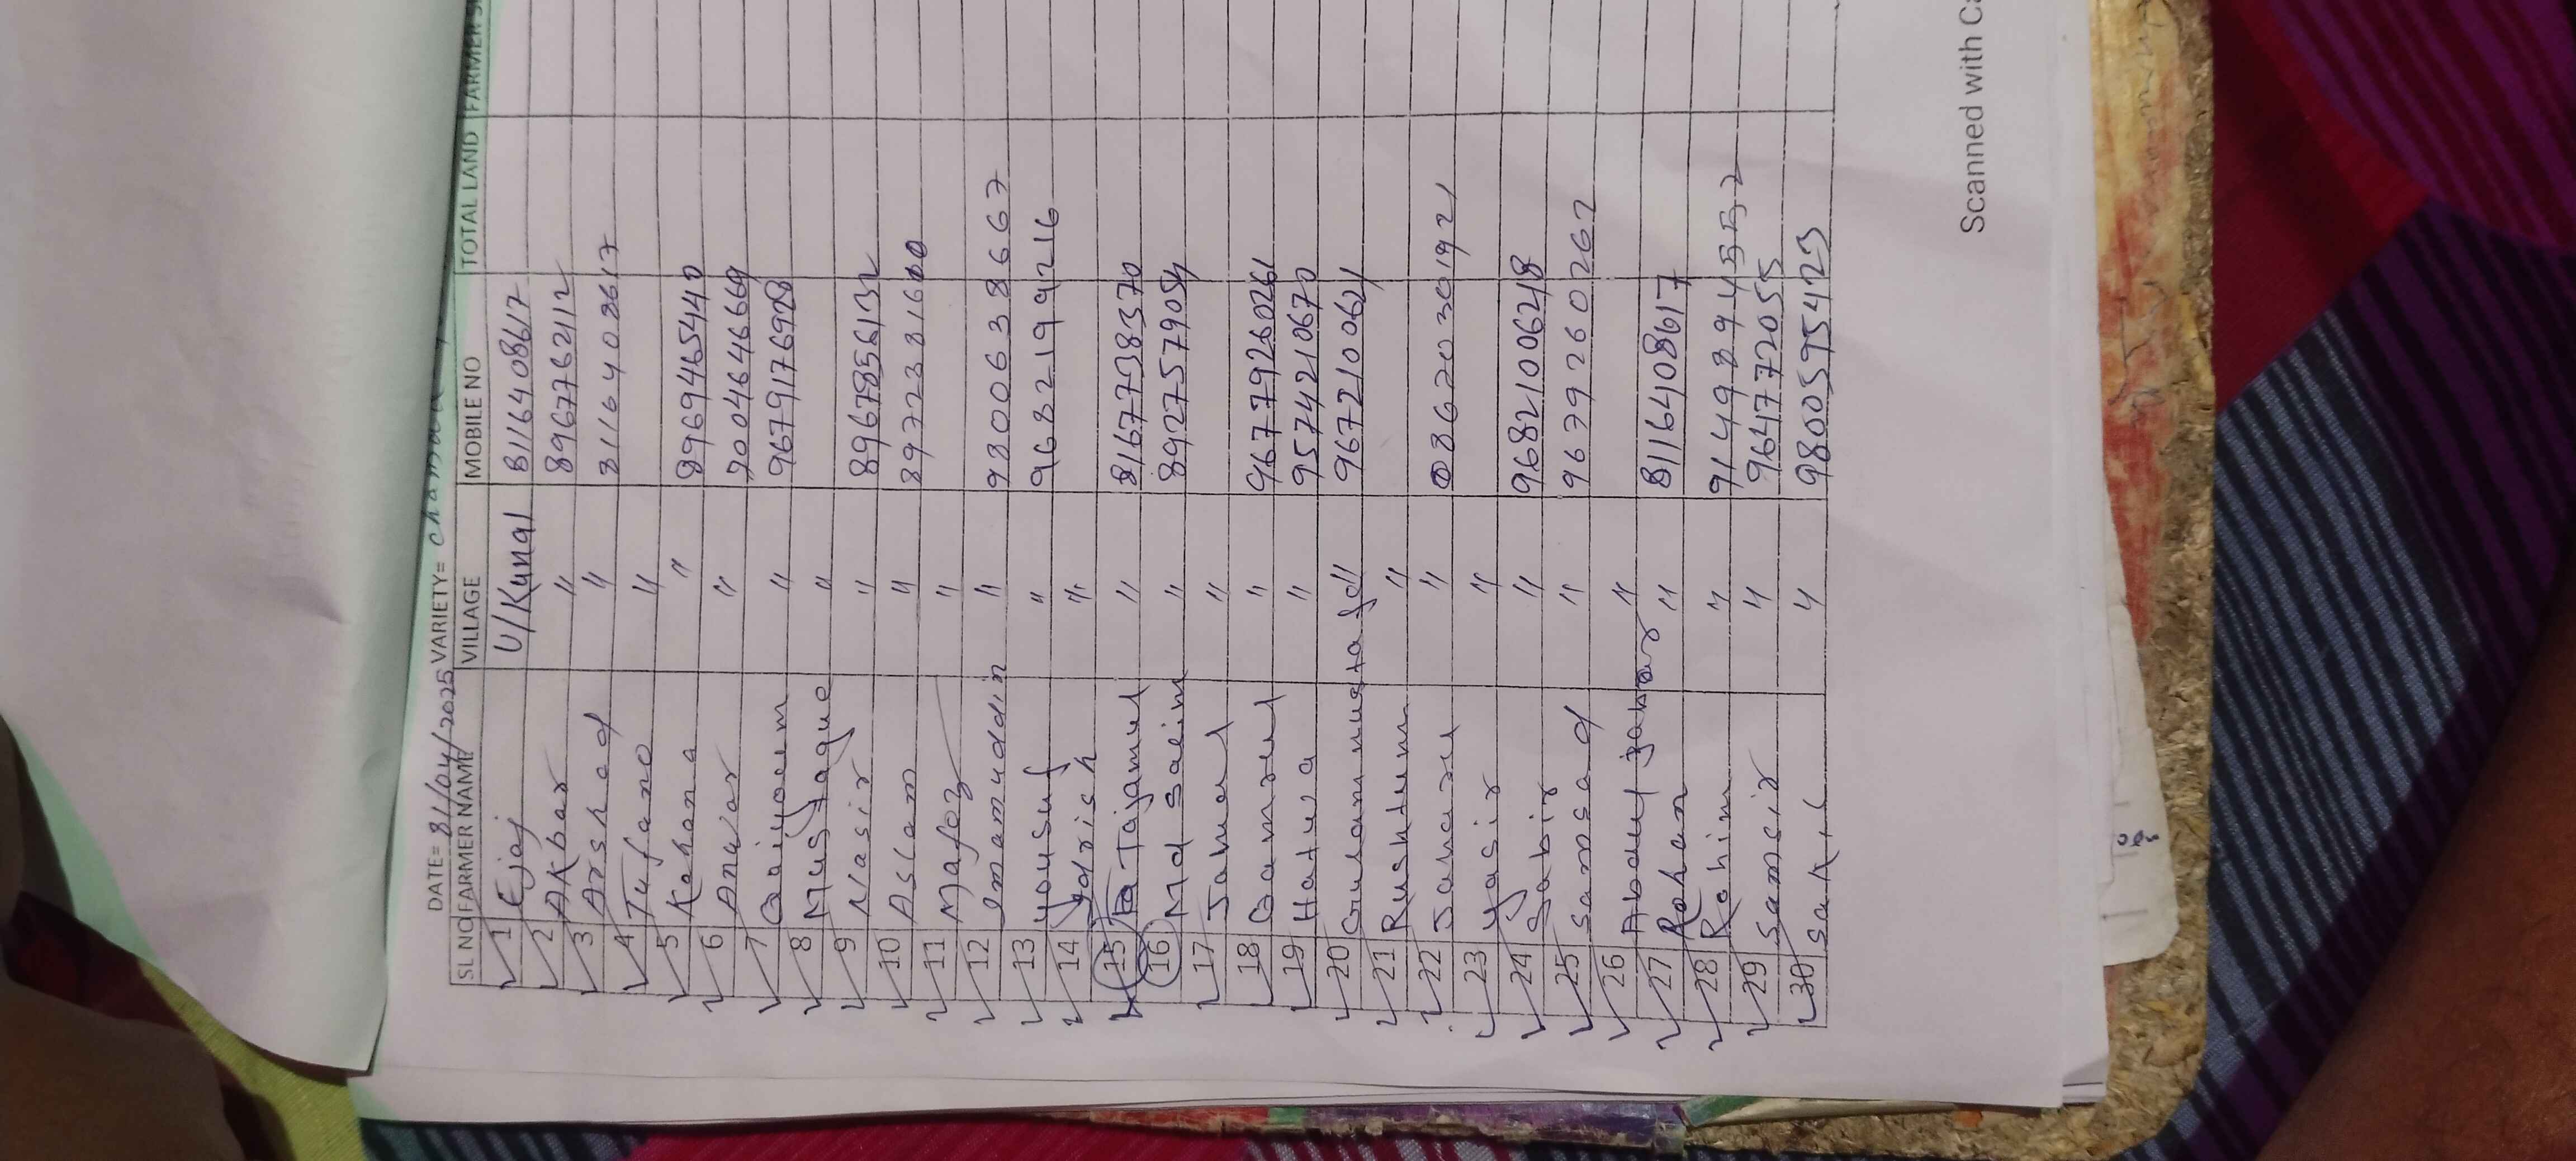 DATE= 8/04/2025 VARIETY=
SL NO FARMER NAME VILLAGE MOBILE NO TOTAL LAND FARMER
1 Ejaj U/Kunal 8116408617
2 Akbar " 8967762112
3 Arshad " 8116408617
4 Tufano "
5 Rehana " 8969465440
6 Anwar " 7004646669
7 Qaiyoom " 9679176928
8 Mustaque "
9 Nasir " 8967856132
10 Aslam " 8972381600
11 Mafoz "
12 Imamuddin " 9800638667
13 yousuf " 9682199216
14 Idrish "
15 Tajamul " 8167738370
16 Md Salim " 8927579054
17 Jamal "
18 Qamrul " 9677926026
19 Hatua " 9574210670
20 Gulam mustafa " 9672100621
21 Rushtum "
22 Jaharul " 8620301921
23 yasir "
24 Sabir " 9682100628
25 Samsad " 9679260262
26 Abdul jabbar "
27 Rohan " 8116408617
28 Rohim " 9149894552
29 Samsir " 9647772055
30 Sakil " 9800595423
Scanned with